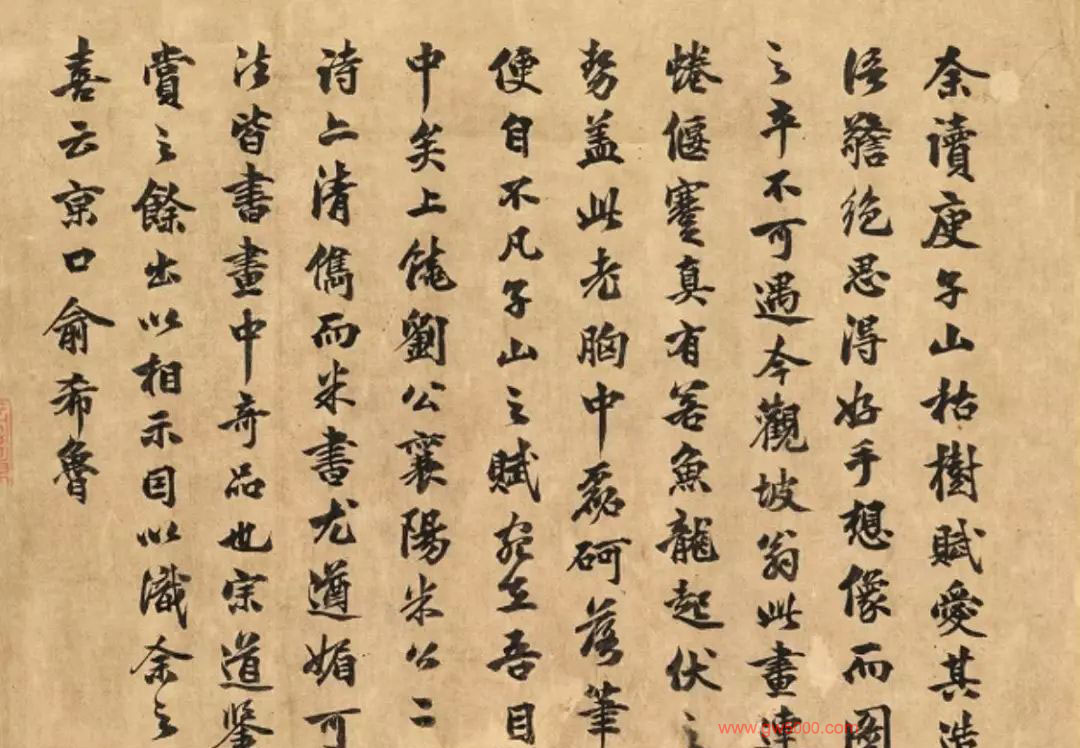 余讀庾子山枯樹賦愛其造
語警絶思得好手想像而圖
之卒不可遇今觀坡翁此畫連
蜷偃蹇真有若魚龍起伏之
勢盖此老胸中磊砢落筆
便自不凡子山之賦宛在吾目
中矣上饒劉公襄陽米公二
詩亦清儁而米書尤遒媚可
法皆書畫中奇品也宗道鑒
賞之餘出以相示因以識余之
喜云京口俞希魯
www.gw5000.com